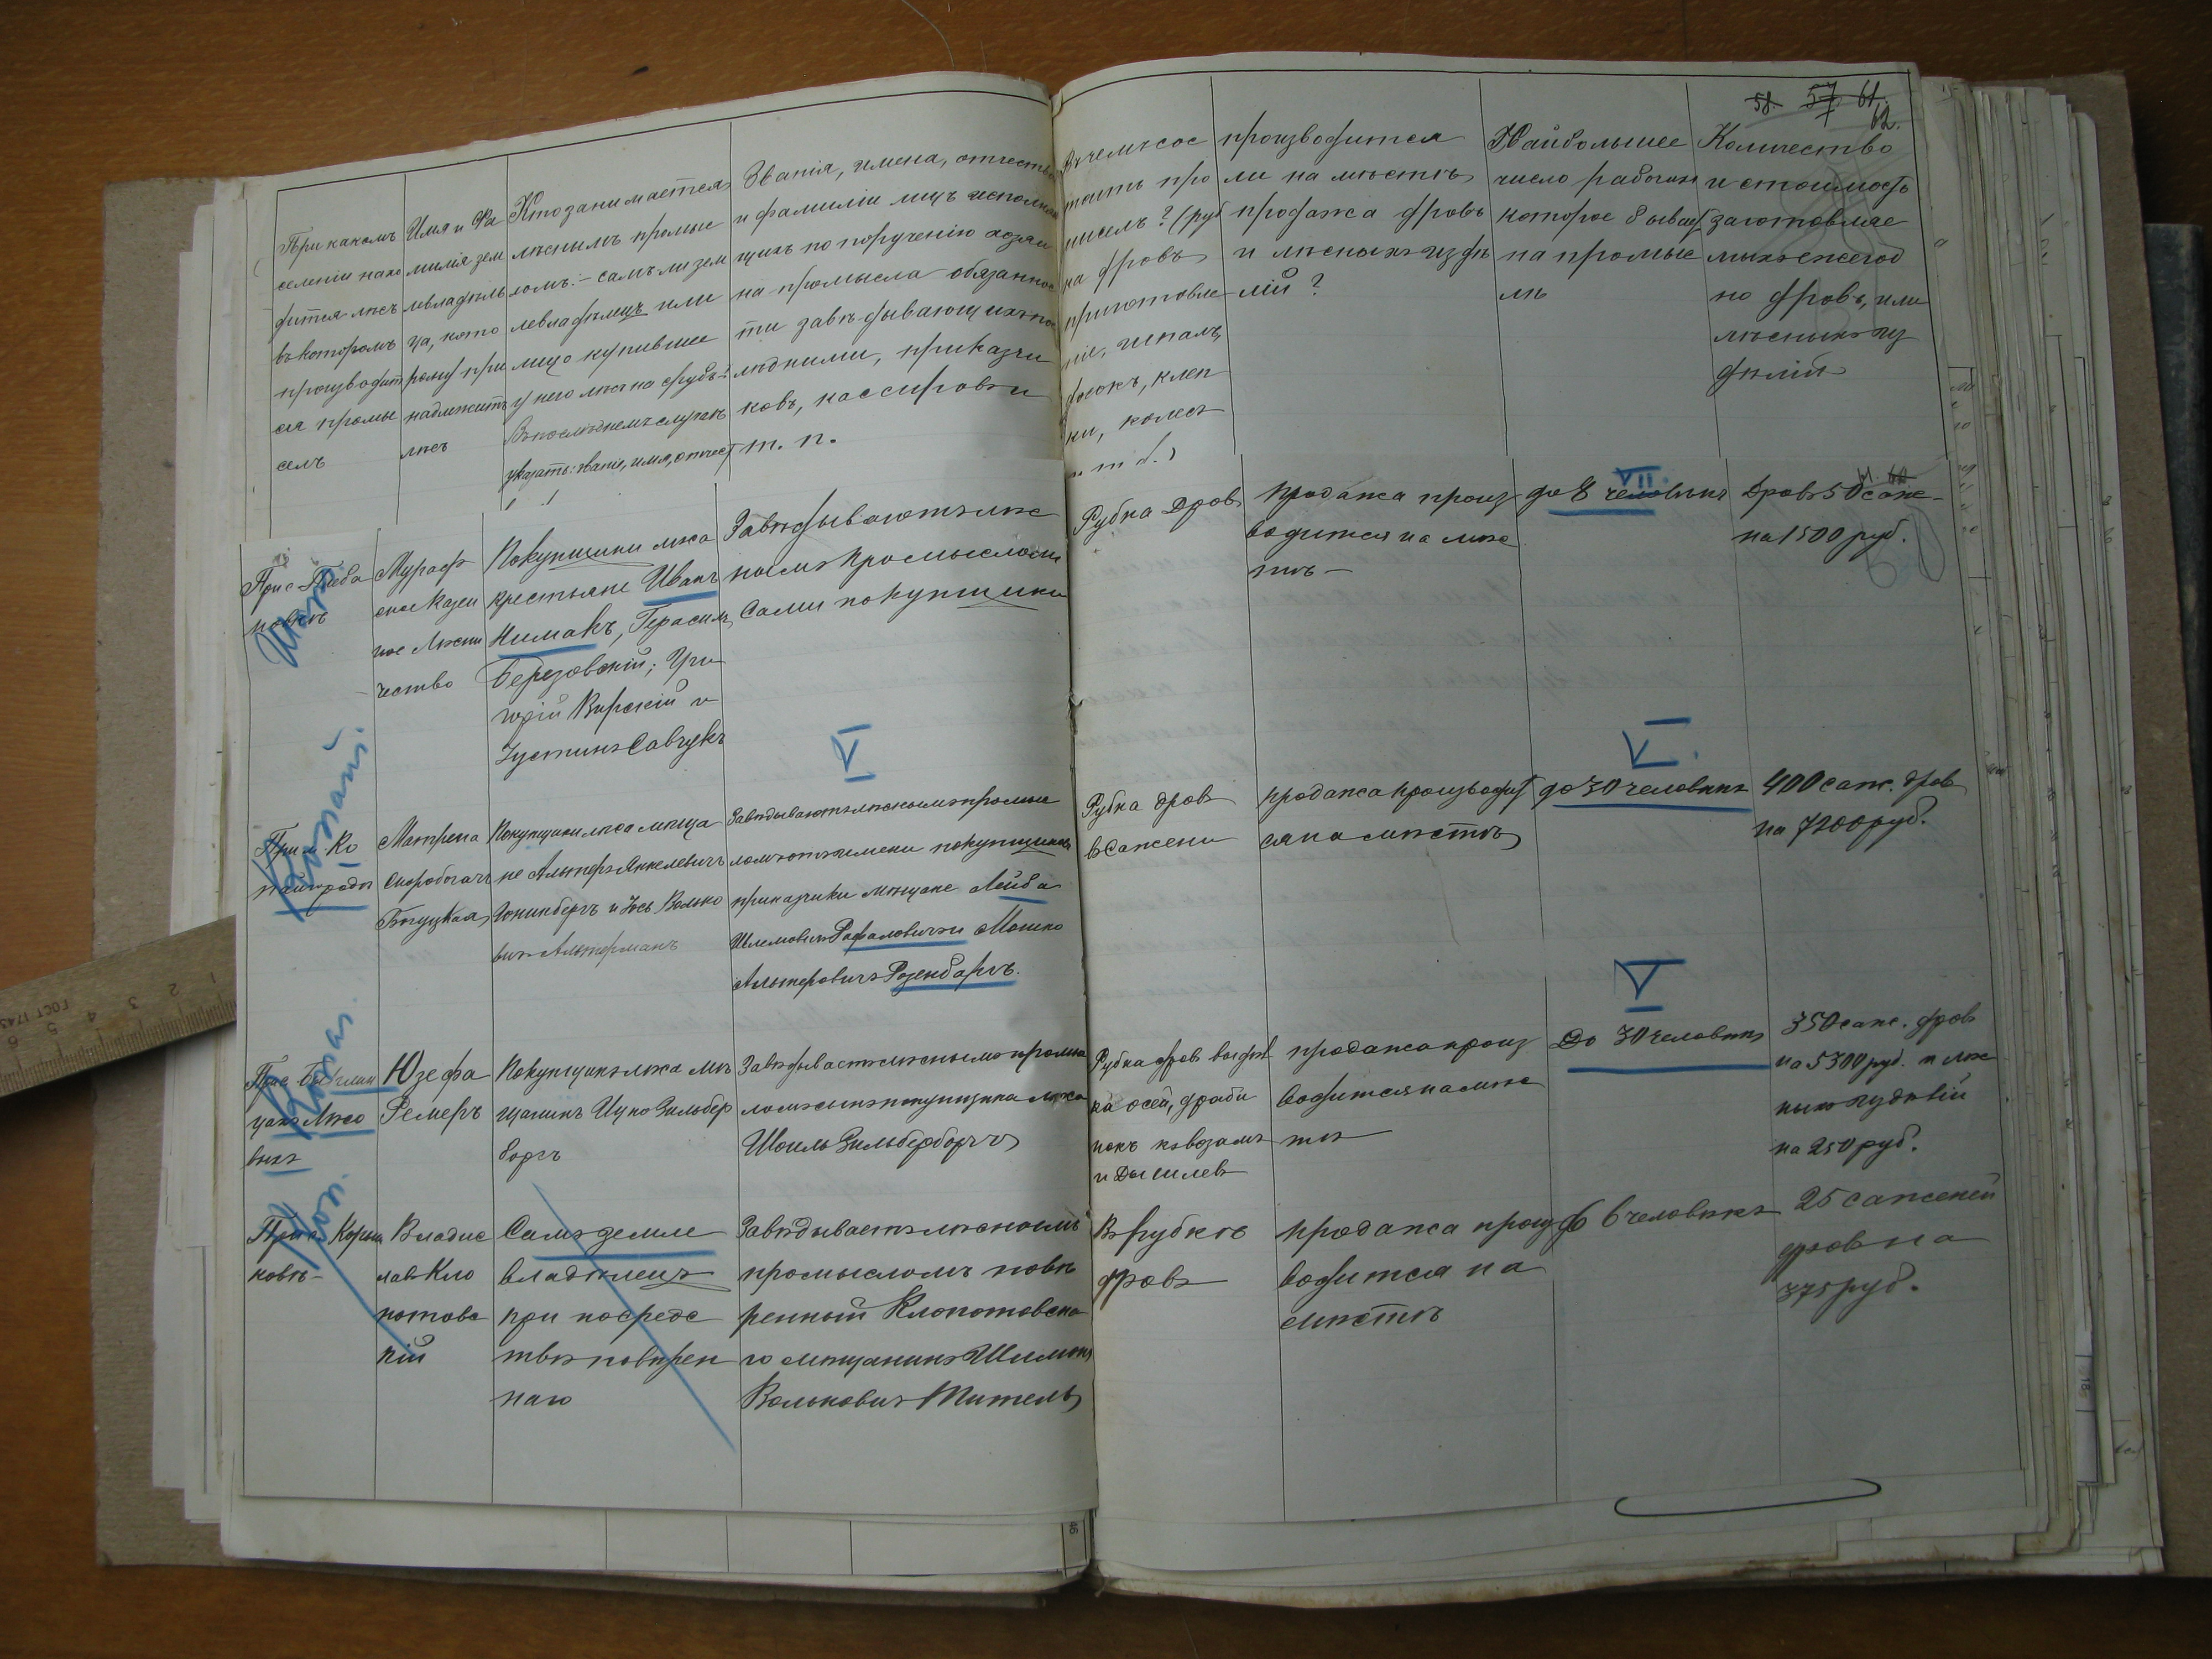 58. 57 61.
62.
При какомъ
селеніи нахо
дится лѣсъ
въ которомъ
производит
ся промы
селъ
Имя и Фа
милія зем
левладѣль
ца, кото
рому при
надлежитъ
лѣсъ
Кто занимается
лѣснымъ промыс
ломъ: – самъ ли зем
левладѣлецъ или
лицо купившее
у него лѣсъ на срубъ?
Въ послѣднемъ случаѣ
указать: званіе, имя, отчест
Званія, имена, отчества
и фамиліи лицъ исполняю
щихъ по порученію хозяи
на промысла обязаннос
ти завѣдывающихъ по
лѣдними, приказчи
ковъ, кассировъ и
т. п.
Въ чемъ сос
тоитъ про
мыселъ? (руб
ка дровъ
приготовле
ніе, шпалъ,
клеп
ки, колесъ
и т. д.)
производится
ли на мѣстѣ
продажа дровъ
и лѣсныхъ издѣ
лій?
Наибольшее
число рабочихъ
которое бывает
на промыс
лѣ
Количество
и стоимость
заготовляе
мыхъ ежегод
но дровъ, или
лѣсныхъ из
дѣлій
При с.
Мураф
ское Казен
ное Лѣсни
чество
Покупщики лѣса
крестьяне Иванъ
Нимакъ, Герасимъ
Березовскій; Гри
горій Вирскій и
Іустинъ Савчукъ
Завѣдываютъ лѣс
нымъ промысломъ
Сами покупщики
Рубка Дровъ
продажа произ
водится на мѣс
тѣ –
VII
до 8 человѣкъ
Дровъ 50 саже–
на 1500 руб.
При м. Ко
пайгородъ
Матрена
Скоробогач
Богуцкая
Покупщики лѣса мѣща
не Альтеръ Янкелевичъ
Гринбергъ и Іось Волько
вичъ Альтерманъ
V
Завѣдываютъ лѣснымъ промыс
ломъ отъ имени покупщиковъ
приказчики мѣщане Лейба
Шлемовичъ Рафаловичъ и Мошко
Альтеровичъ Розенбаргъ.
Рубка дровъ
в Сажени
продажа производит
ся на мѣстѣ
V.
до 30 человѣкъ
400 саж. дров
на 7200 руб.
Юзефа
Ремеръ
Покупщикъ лѣса мѣ
щанинъ Ицко Зильбер
боргъ
Завѣдываетъ лѣснымъ промыс
ломъ сынъ покупщика лѣса
Шоиль Зильберборгъ
Рубка дровъ выдѣл
ка осей, драби
нокъ к возамъ
и Дышлевъ
продажа произ
водится на мѣс
тѣ
V
До 30 человѣкъ
350 саж. дровъ
на 5300 руб. и лѣс
ныхъ издѣлій
на 250 руб.
Владис
лав Кло
потовс
кій
Самъ земле
владѣлецъ
при посредс
твѣ повѣрен
наго
Завѣдываетъ лѣснымъ
промысломъ повѣ
ренный Клопотовска
го мѣщанинъ Шлиома
Вольковичъ Тительъ
Въ рубкѣ
дровъ
продажа произ
водится на
мѣстѣ
6 человѣкъ
25 саженей
дровъ на
375 руб.